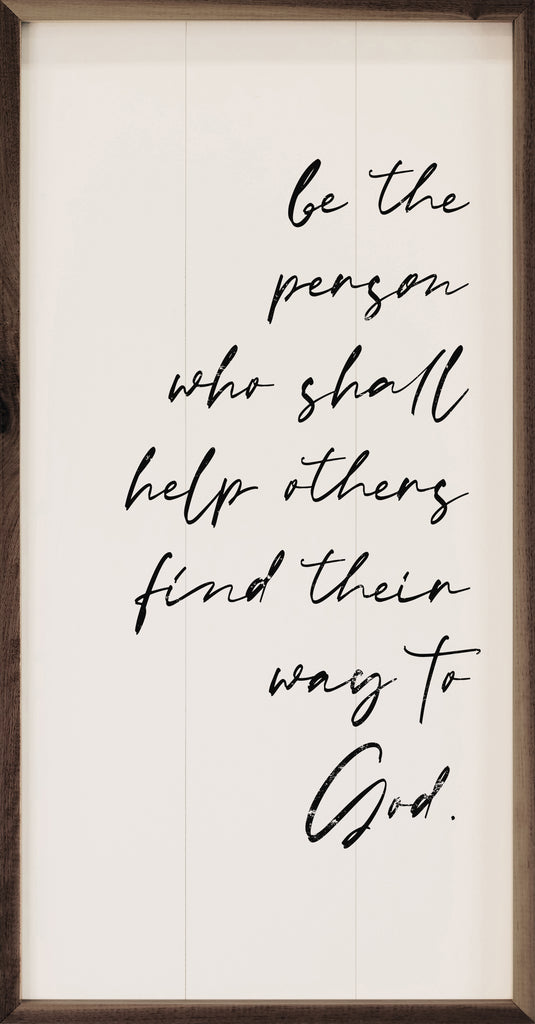 be the
person
who shall
help others
find their
way to
God.